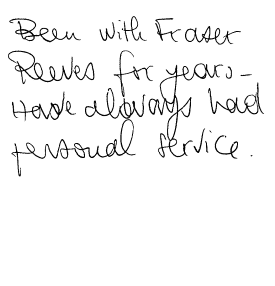 Been with Fraser
Reeves for years -
Have always had
personal service.